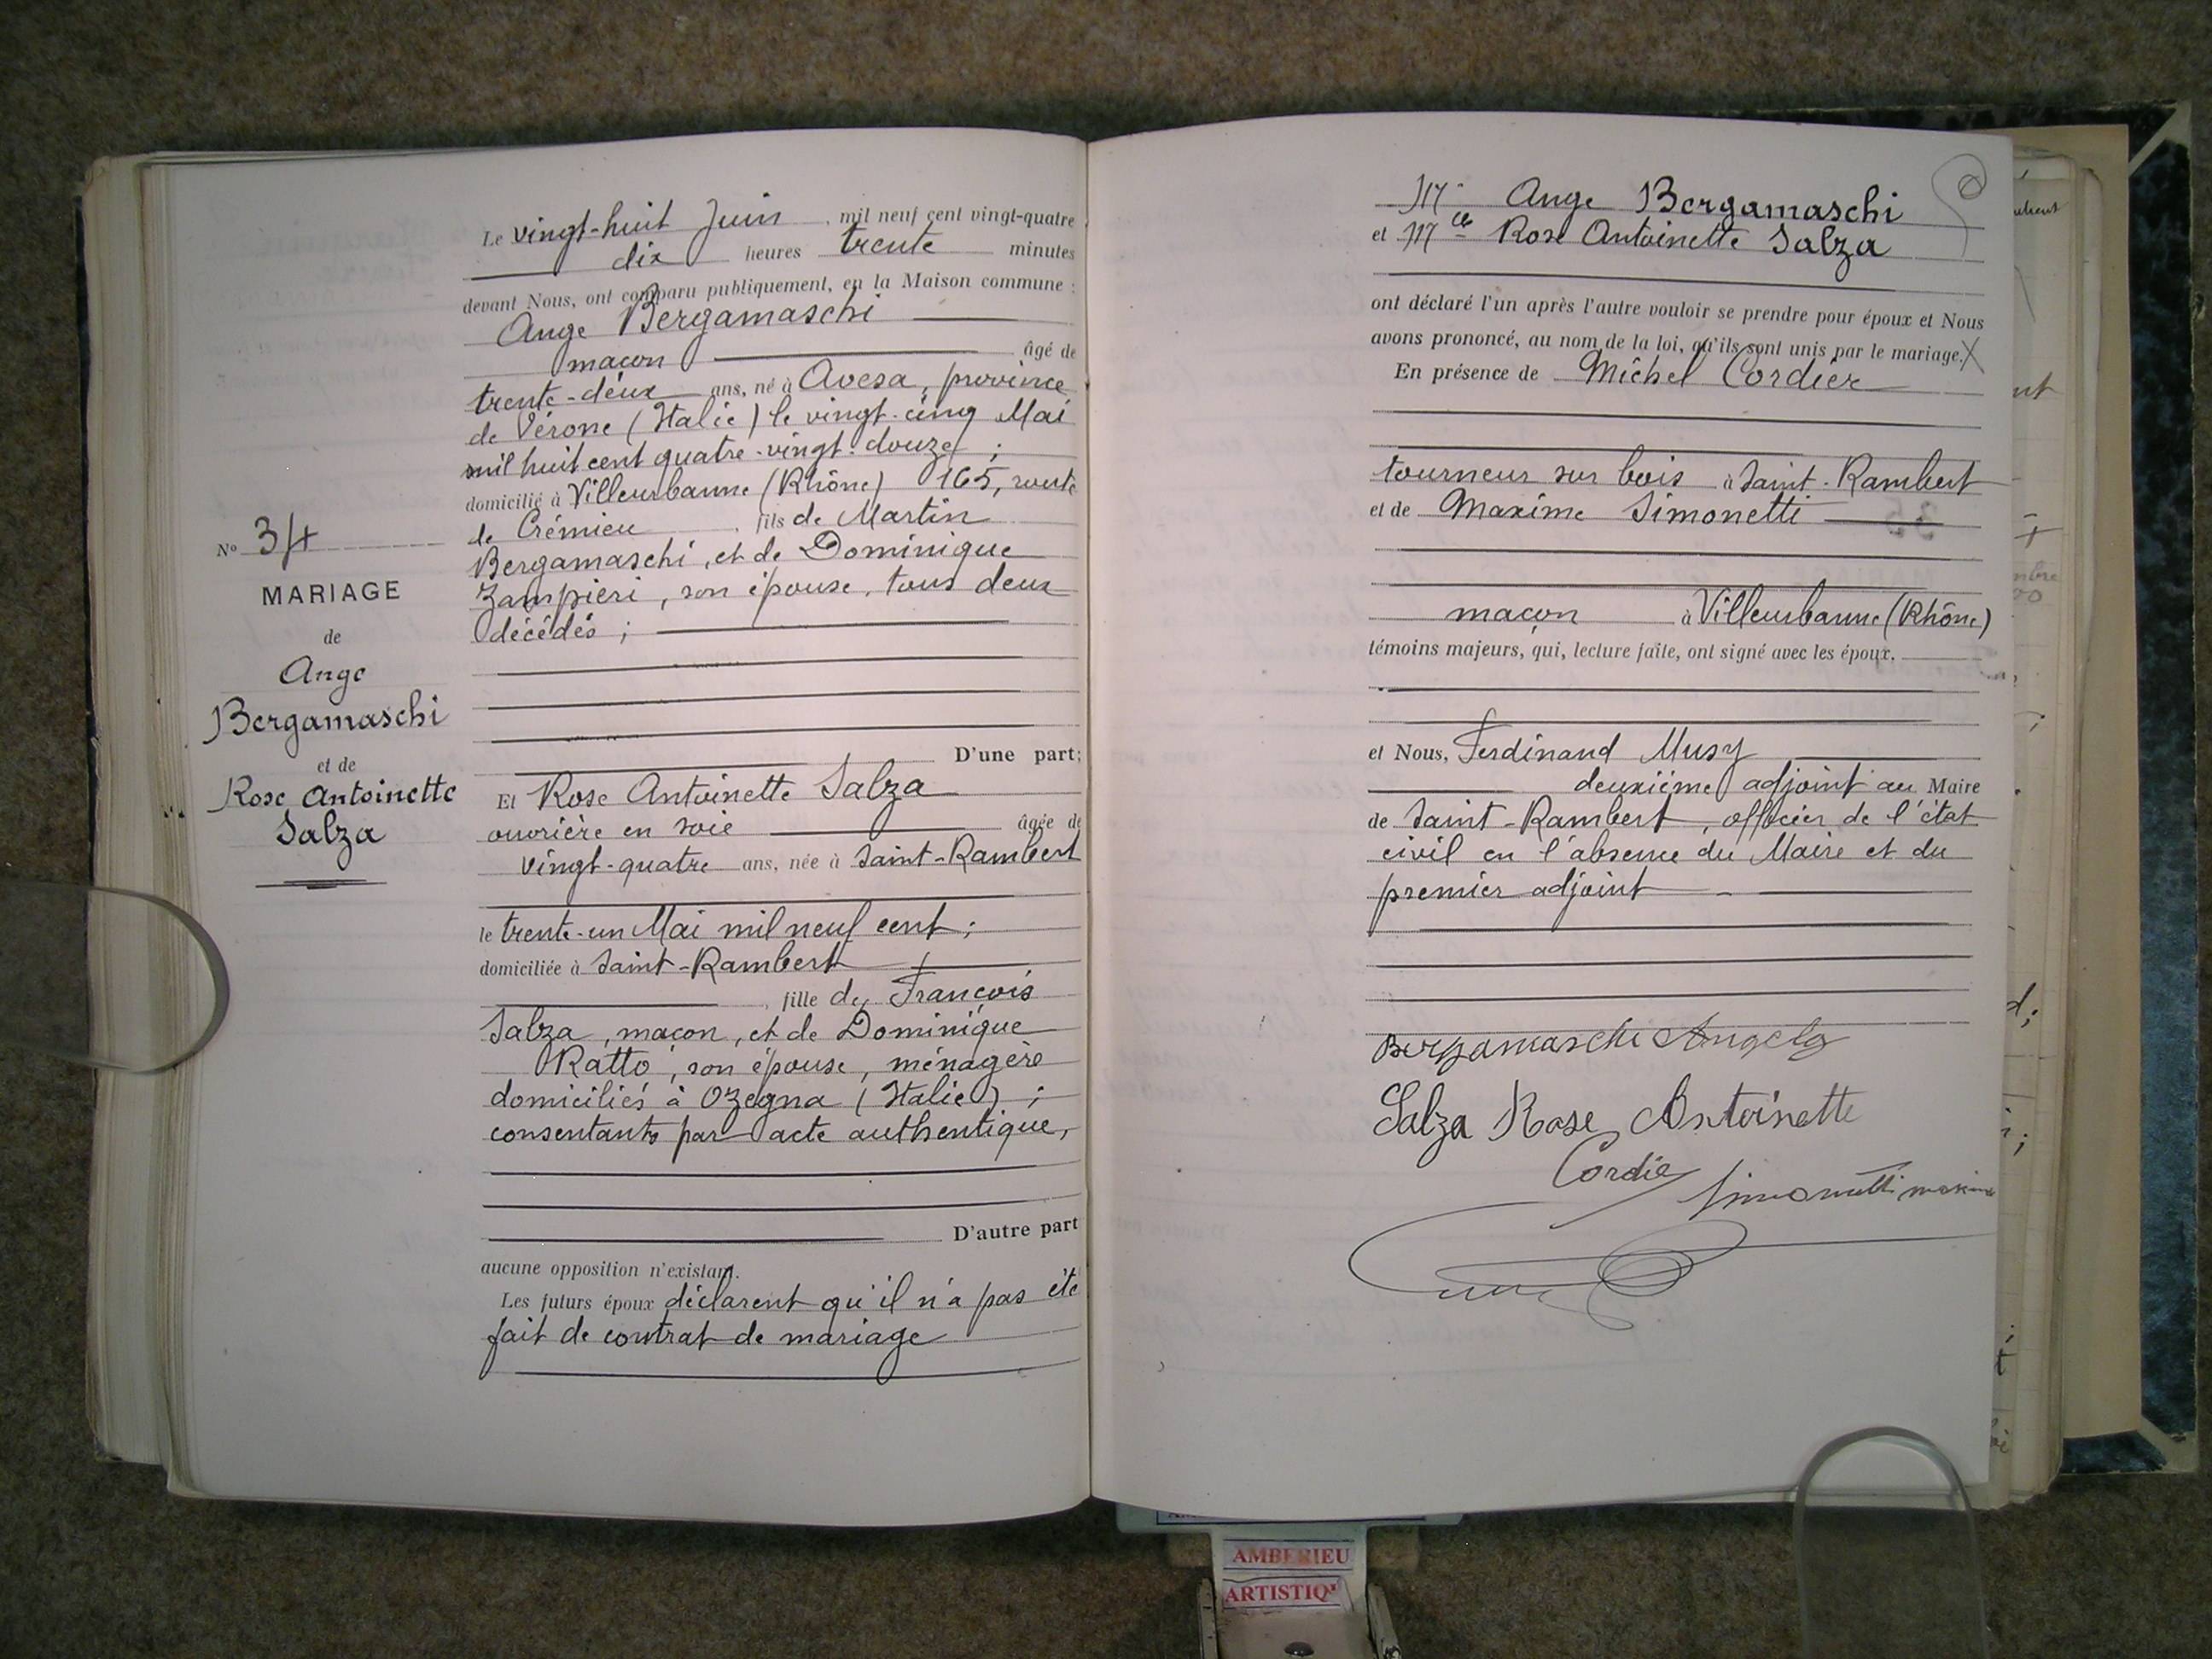 N° 34
MARIAGE
de
Ange
Bergamaschi
et de
Rose Antoinette
Salza
Le vingt-huit Juin, mil neuf cent vingt-quatre
dix heures trente minutes
devant Nous, ont comparu publiquement, en la Maison commune :
Ange Bergamaschi
maçon âgé de
trente-deux ans, né à Avesa, province
de Vérone (Italie) le vingt-cinq Mai
mil huit cent quatre-vingt-douze ;
domicilié à Villeurbanne (Rhône) 165, route
de Crémieu, fils de Martin
Bergamaschi, et de Dominique
Zampieri, son épouse, tous deux
décédés ;
D'une part;
Et Rose Antoinette Salza
ouvrière en soie âgée de
vingt-quatre ans, née à Saint-Rambert
le trente-un Mai mil neuf cent ;
domiciliée à Saint-Rambert
, fille de François
Salza, maçon, et de Dominique
Ratto, son épouse, ménagère
domiciliés à Ozegna (Italie) ;
consentants par acte authentique,
D'autre part
aucune opposition n'existant.
Les futurs époux déclarent qu'il n'a pas été
fait de contrat de mariage
Mr Ange Bergamaschi
et Mlle Rose Antoinette Salza
ont déclaré l'un après l'autre vouloir se prendre pour époux et Nous
avons prononcé, au nom de la loi, qu'ils sont unis par le mariage.
En présence de Michel Cordier
tourneur sur bois à Saint-Rambert
et de Maxime Simonetti
maçon à Villeurbanne (Rhône)
témoins majeurs, qui, lecture faite, ont signé avec les époux.
et Nous, Ferdinand Musy
deuxième adjoint au Maire
de Saint-Rambert, officier de l'état
civil en l'absence du Maire et du
premier adjoint
Bergamaschi Angelo
Salza Rose Antoinette
Cordier
Simonetti maxime
AMBERIEU
ARTISTIQ